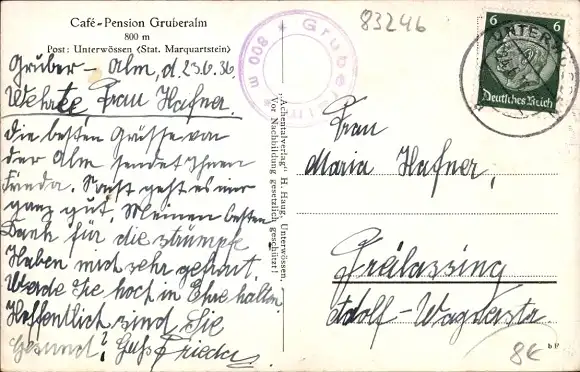 Café-Pension Gruberalm
800 m
Post: Unterwössen (Stat. Marquartstein)
Gruber-Alm, d. 23.6.36
Wehrte Frau Hafner.
Die besten Grüsse von
der Alm sendet Ihnen
Frieda. Sonst geht es mir
ganz gut. Meinen besten
Dank für die strümpfe
Haben mich sehr gefreut.
Werde Sie hoch in Ehre halten
Hoffentlich sind Sie
Gesund? Gruss Frieda.
* Gruberalm * 800 m
"Achentalverlag" H. Haug, Unterwössen.
Vor Nachbildung gesetzlich geschützt!
83246
6 6
Deutsches Reich
UNTER
Frau
Maria Hafner,
Freilassing
Adolf-Wagnerstr.
8€